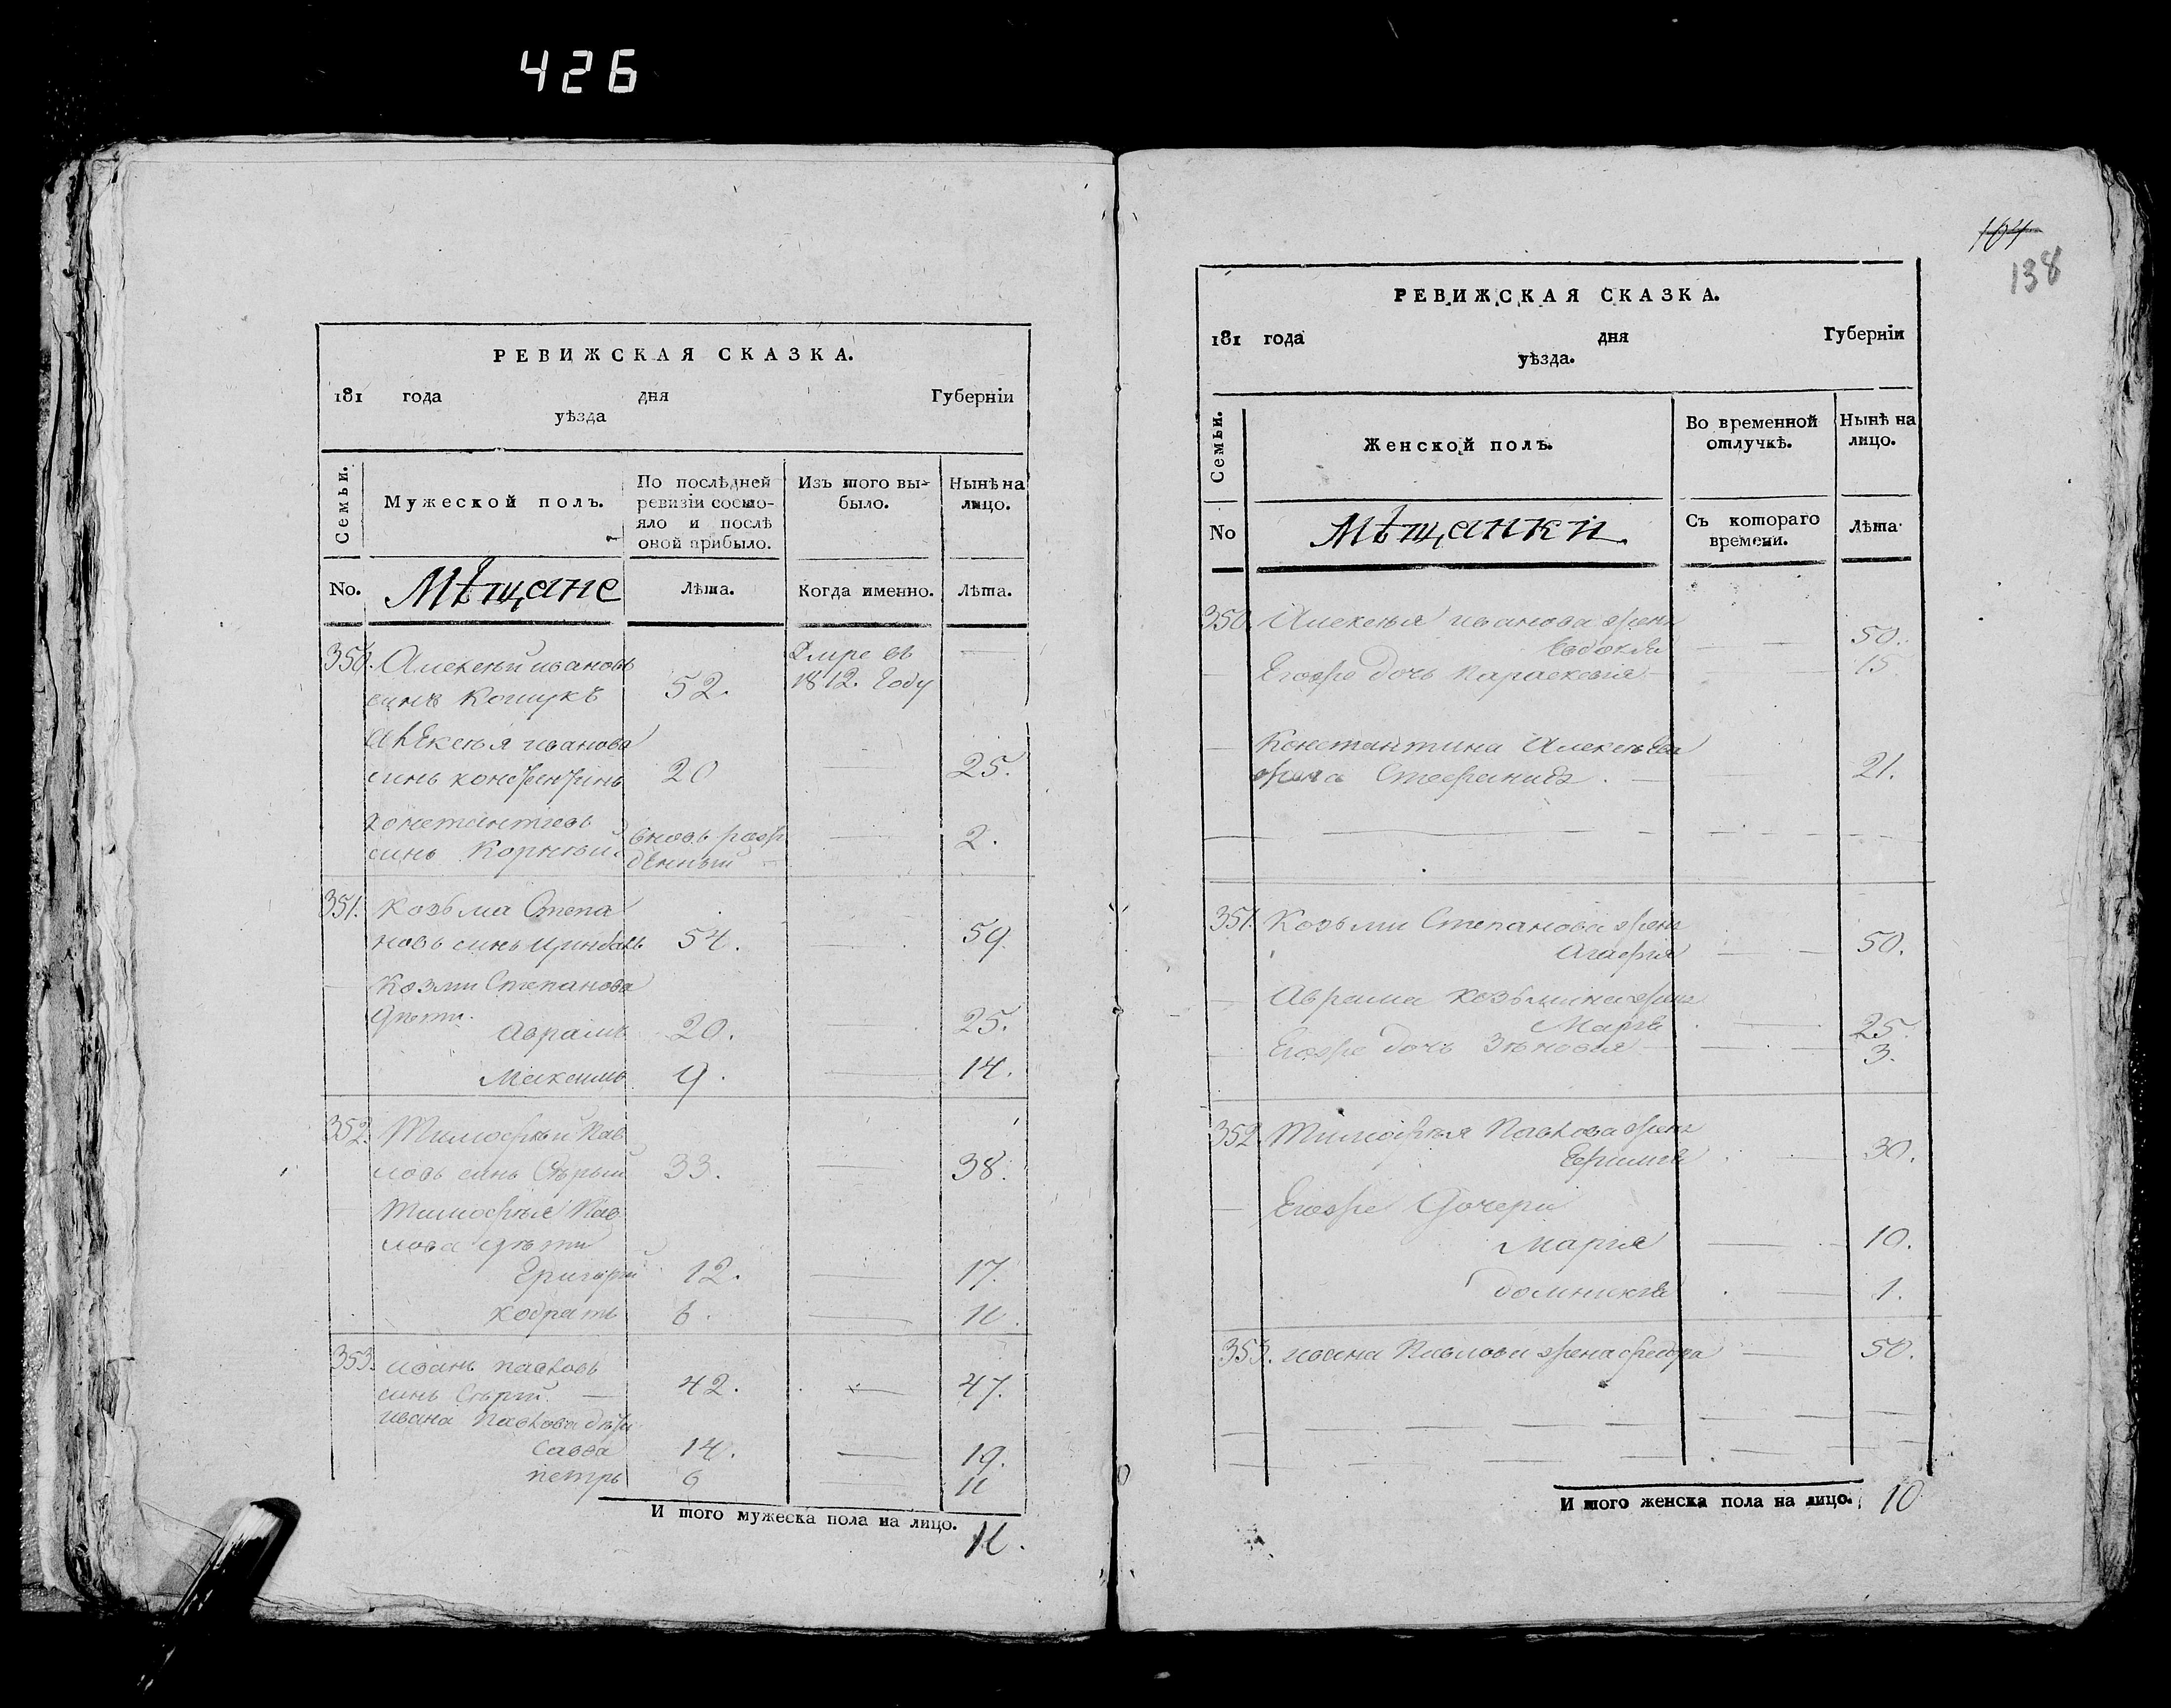 426
РЕВИЖСКАЯ СКАЗКА.
181 года дня Губерніи
уѣзда
Семьи.
Мужеской полъ.
По послѣдней ревизіи состояло и послѣ оной прибыло.
Изъ того выбыло.
Нынѣ на лицо.
No.
Мѣщане
Лѣта.
Когда именно.
Лѣта.
350. Алексѣй ивановъ
синъ Кошукъ 52.
Умре въ
1812. Году
Алексѣя иванова
синъ констентинъ 20 25.
константиновъ
синъ Корнѣй вновь рож
денный 2.
351. Козьма Степа
новъ синъ 54. 59.
Козми Степанова
дѣти
Аврамъ 20. 25.
Максимъ 9. 14.
352. Тимофѣй Пав
ловъ синъ Сѣрый 33. 38.
Тимофѣя Пав
лова дѣти
Григорій 12. 17.
Кодратъ 6. 11.
353. иванъ павловъ
синъ Сѣрий 42. 47.
ивана Павлова дѣти
Савва 14. 19.
петръ 6 11
И того мужеска пола на лицо. 11.
104
138
РЕВИЖСКАЯ СКАЗКА.
181 года дня Губерніи
уѣзда.
Семьи.
Женской полъ.
Во временной отлучкѣ.
Нынѣ на лицо.
No
Мѣщанки.
Съ котораго времени.
Лѣта
350. Алексѣя иванова жена
Евдокія 50.
Егожъ дочь Параскевія 15.
Константина Алексѣева
жена Стефанида 21.
351. Козьми Степанова жена
Агафія 50.
Аврама козьмина жена
Марія 25.
Егоже дочь Зѣновія 3.
352. Тимофѣя Павлова жена
Ефимія 30.
Егоже Дочери
Марія 10.
домникія 1.
353. ивана Павлова жена феодора 50.
И того женска пола на лицо. 10